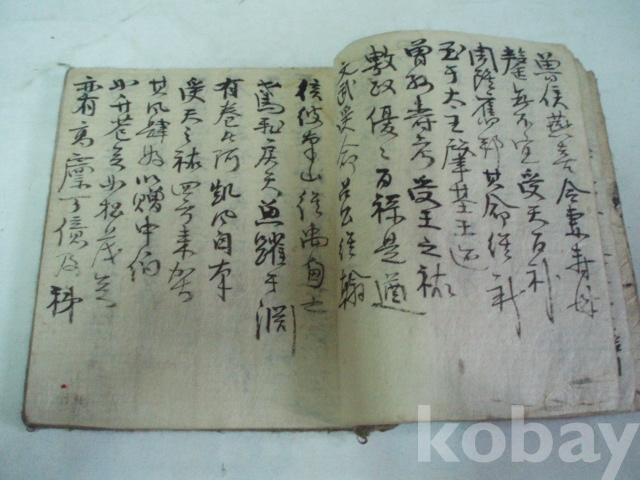 魯侯燕喜令妻壽母
罄無不宜受天百祿
周雖舊邦其命維新
至于太王肇基王迹
曾孫壽考受王之祜
敷政優〻百祿是遒
文武受命召公維翰
信彼南山維禹甸之
鳶飛戾天魚躍于淵
有卷者阿凱風自南
受天之祜四方來賀
其風肆好以贈申伯
如竹苞矣如松茂矣
亦有高廩万億及秭
kobay